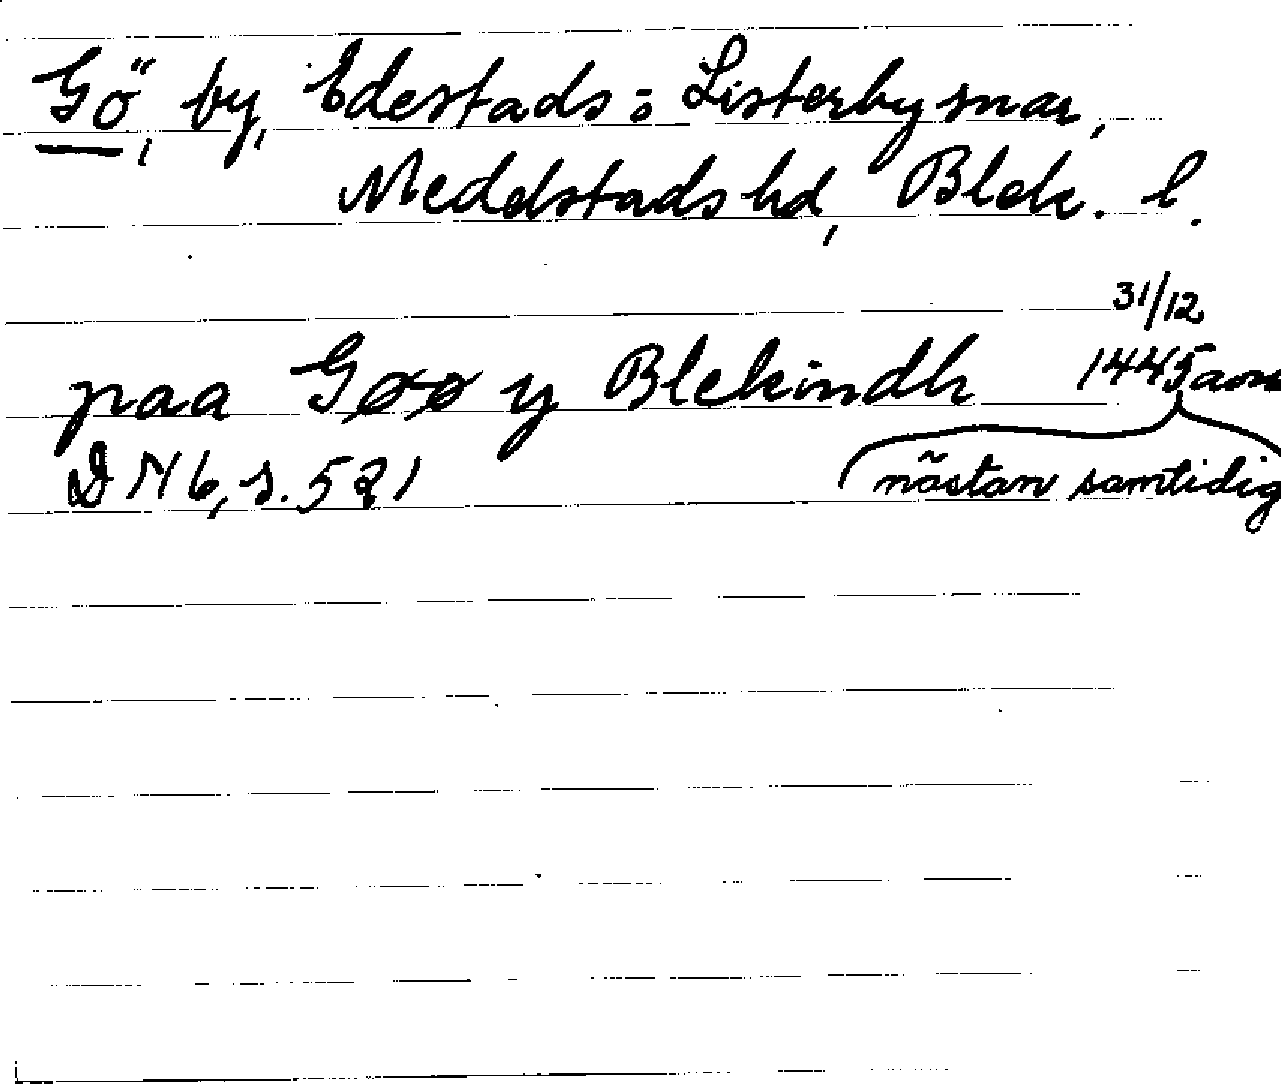 Gö, by, Edestads o Listerby snar,
Medelstads hd, Blek. l.
31/12
paa Gøø y Blekindh 1445
DN 6, s. 521 nästan samtidig